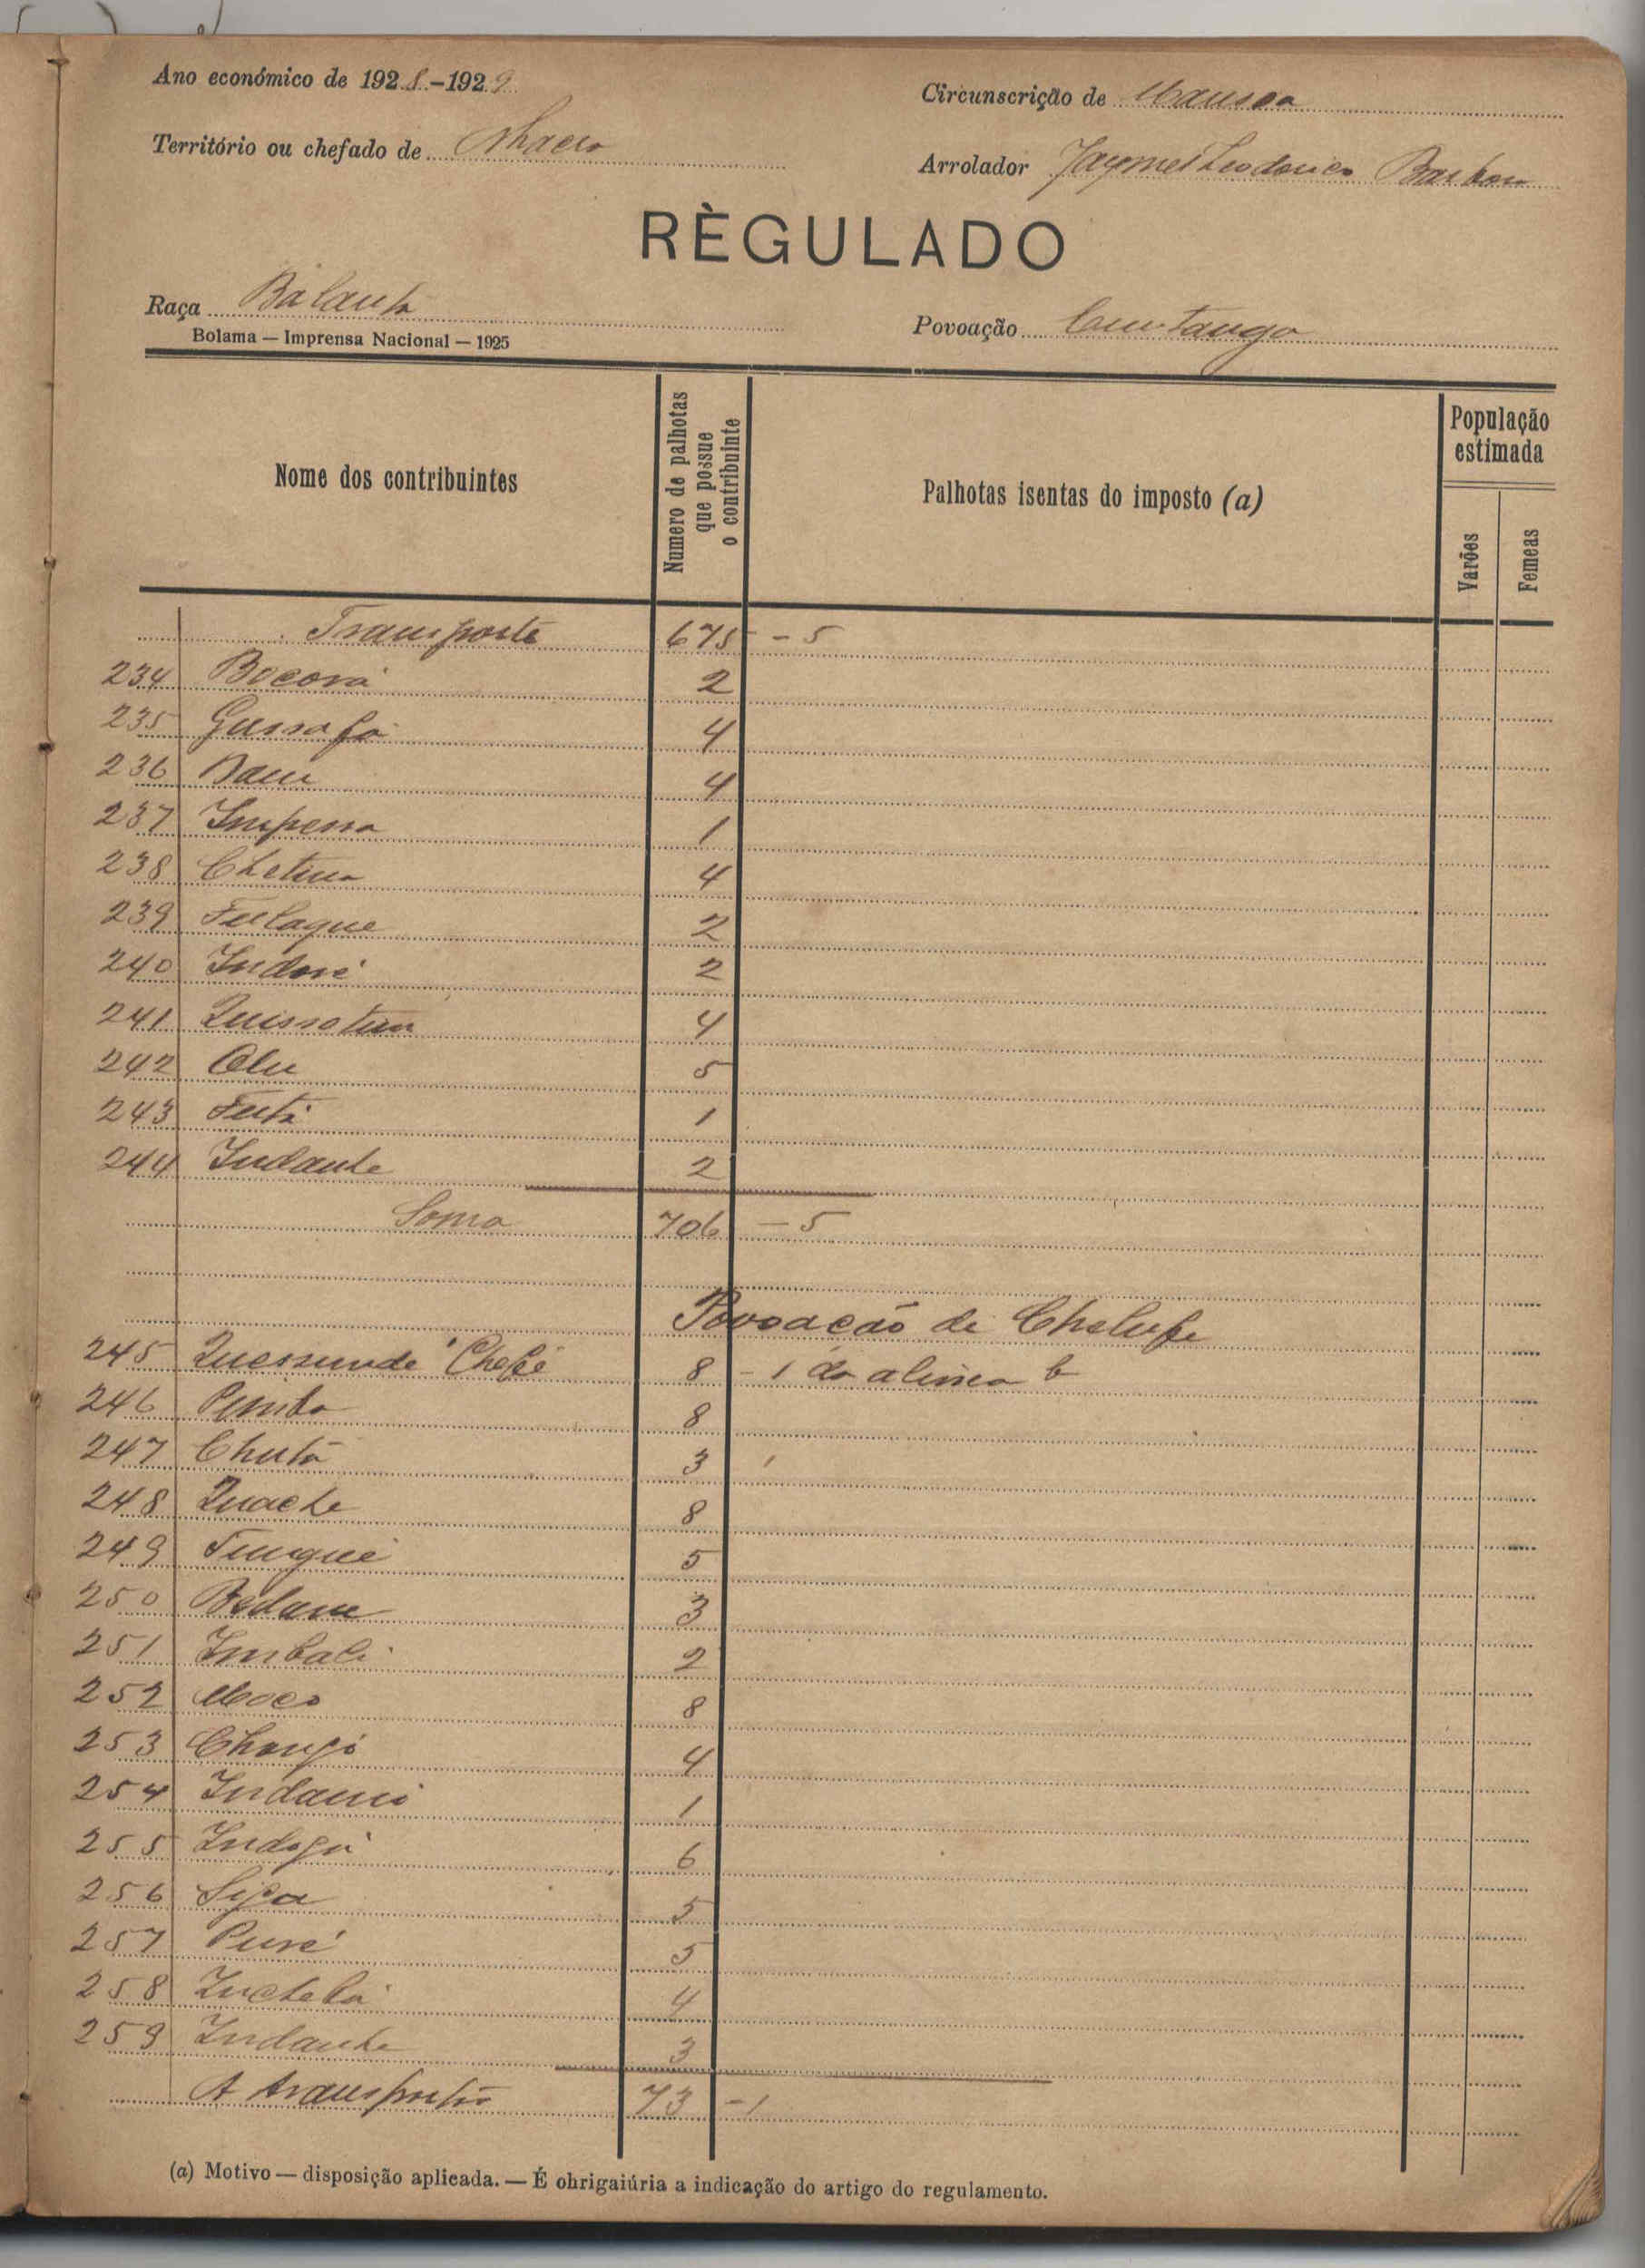 Ano económico de 1928-1929
Circunscrição de Mansoa
Território ou chefado de Nhaero
Arrolador Jayme Teodorico Barbosa
RÈGULADO
Raça Balanta
Povoação Cuntanga
Bolama — Imprensa Nacional — 1925
Nome dos contribuintes
Numero de palhotas que possue o contribuinte
Palhotas isentas do imposto (a)
População estimada
Varões
Femeas
Transporte 675 - 5
234 Bocorá 2
235 Gussafá 4
236 Dam 4
237 Impessa 1
238 Chetua 4
239 Fulaque 2
240 Indoré 2
241 Quissotum 4
242 Olu 5
243 Futi 1
244 Indante 2
Soma 706 - 5
Povoação de Chelufe
245 Quessunde Chefe 8 - 1 da alinea b
246 Pemba 8
247 Chutá 3
248 Quache 8
249 Tungué 5
250 Bedam 3
251 Imbali 2
252 Moco 8
253 Chongó 4
254 Indami 1
255 Indafá 6
256 Sifa 5
257 Puré 5
258 Quelebá 4
259 Indanha 3
A transportar 73 - 1
(a) Motivo — disposição aplicada. — É obrigaiúria a indicação do artigo do regulamento.